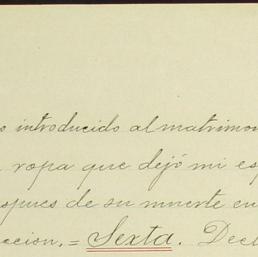 o introducido al matrimon
ropa que dejó mi esp
spues de su muerte en
cion. = Sexta. Decl